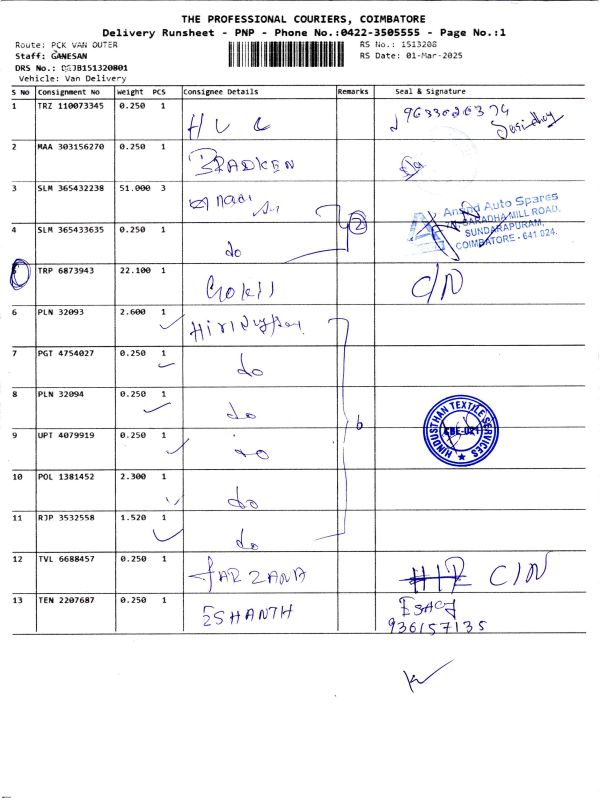 THE PROFESSIONAL COURIERS, COIMBATORE
Delivery Runsheet - PNP - Phone No.:0422-3505555 - Page No.:1
Route: PCK VAN OUTER
RS No.: 1513208
Staff: GANESAN
RS Date: 01-Mar-2025
DRS No.: 151320801
Vehicle: Van Delivery
S No Consignment No Weight PCS Consignee Details Remarks Seal & Signature
1 TRZ 110073345 0.250 1 H U C
2 MAA 303156270 0.250 1 BRADKEN
3 SLM 365432238 51.000 3
Anand Auto Spares
SARADHA MILL ROAD,
SUNDARAPURAM,
COIMBATORE - 641 024.
2
4 SLM 365433635 0.250 1 do
5 TRP 6873943 22.100 1 Gokil C/N
6 PLN 32093 2.600 1
7 PGT 4754027 0.250 1 do
8 PLN 32094 0.250 1 do
6
HINDUSTHAN TEXTILE SERVICES
CBE-021
9 UPT 4079919 0.250 1 do
10 POL 1381452 2.300 1 do
11 RJP 3532558 1.520 1 do
12 TVL 6688457 0.250 1 FARZANA C/N
13 TEN 2207687 0.250 1 ESHANTH
936157135